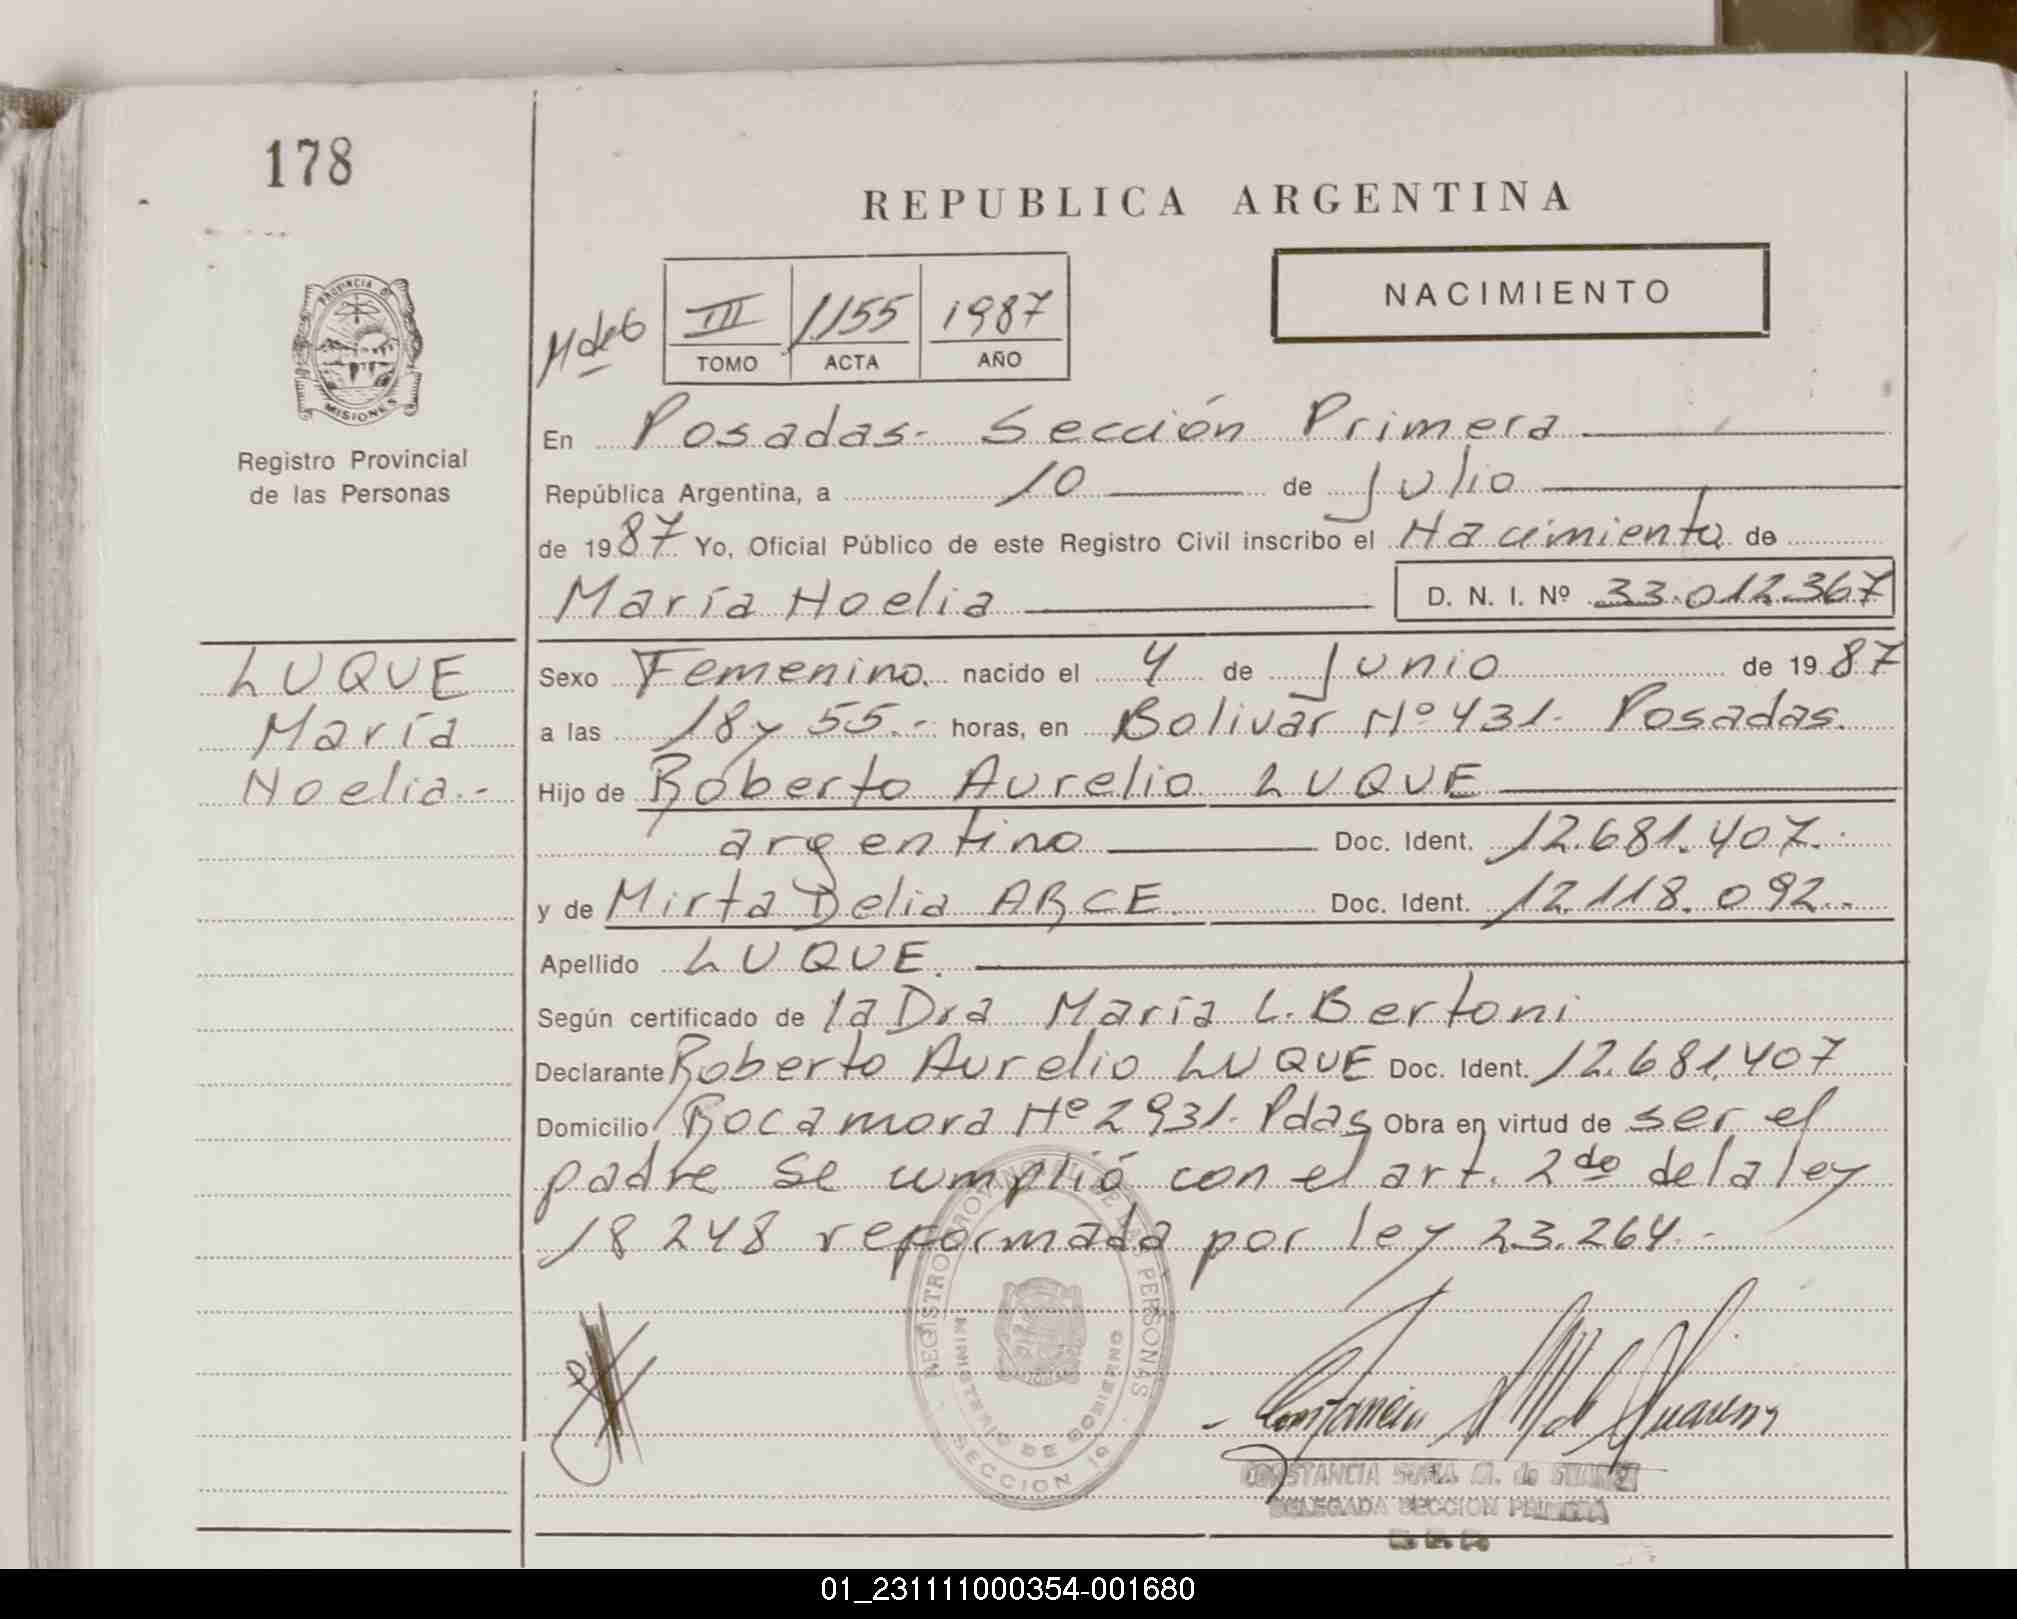 178
REPUBLICA ARGENTINA
NACIMIENTO
III 1155 1987
TOMO ACTA AÑO
PROVINCIA D
MISIONES
Registro Provincial
de las Personas
En Posadas.- Sección Primera
República Argentina, a 10 de Julio
de 1987 Yo, Oficial Público de este Registro Civil inscribo el Nacimiento de
María Noelia D. N. I. Nº 33.012.367
LUQUE
María
Noelia.-
Sexo Femenino. nacido el 4 de Junio de 1987
a las 18 y 55.- horas, en Bolivar Nº 431.- Posadas.
Hijo de Roberto Aurelio LUQUE
argentino Doc. Ident. 12.681.407.-
y de Mirta Delia ARCE Doc. Ident. 12.118.092.-
Apellido LUQUE.
Según certificado de la Dra María L. Bertoni
Declarante Roberto Aurelio LUQUE Doc. Ident. 12.681.407
Domicilio Rocamora Nº 2931.- Pdas Obra en virtud de ser el
padre Se cumplió con el art. 2do de la ley
18 248 reformada por ley 23.264.-
REGISTRO PROVINCIAL DE LAS PERSONAS
MINISTERIO DE GOBIERNO
SECCION 1º
CONSTANCIA M. de
DELEGADA SECCION PRIMERA
01_231111000354-001680